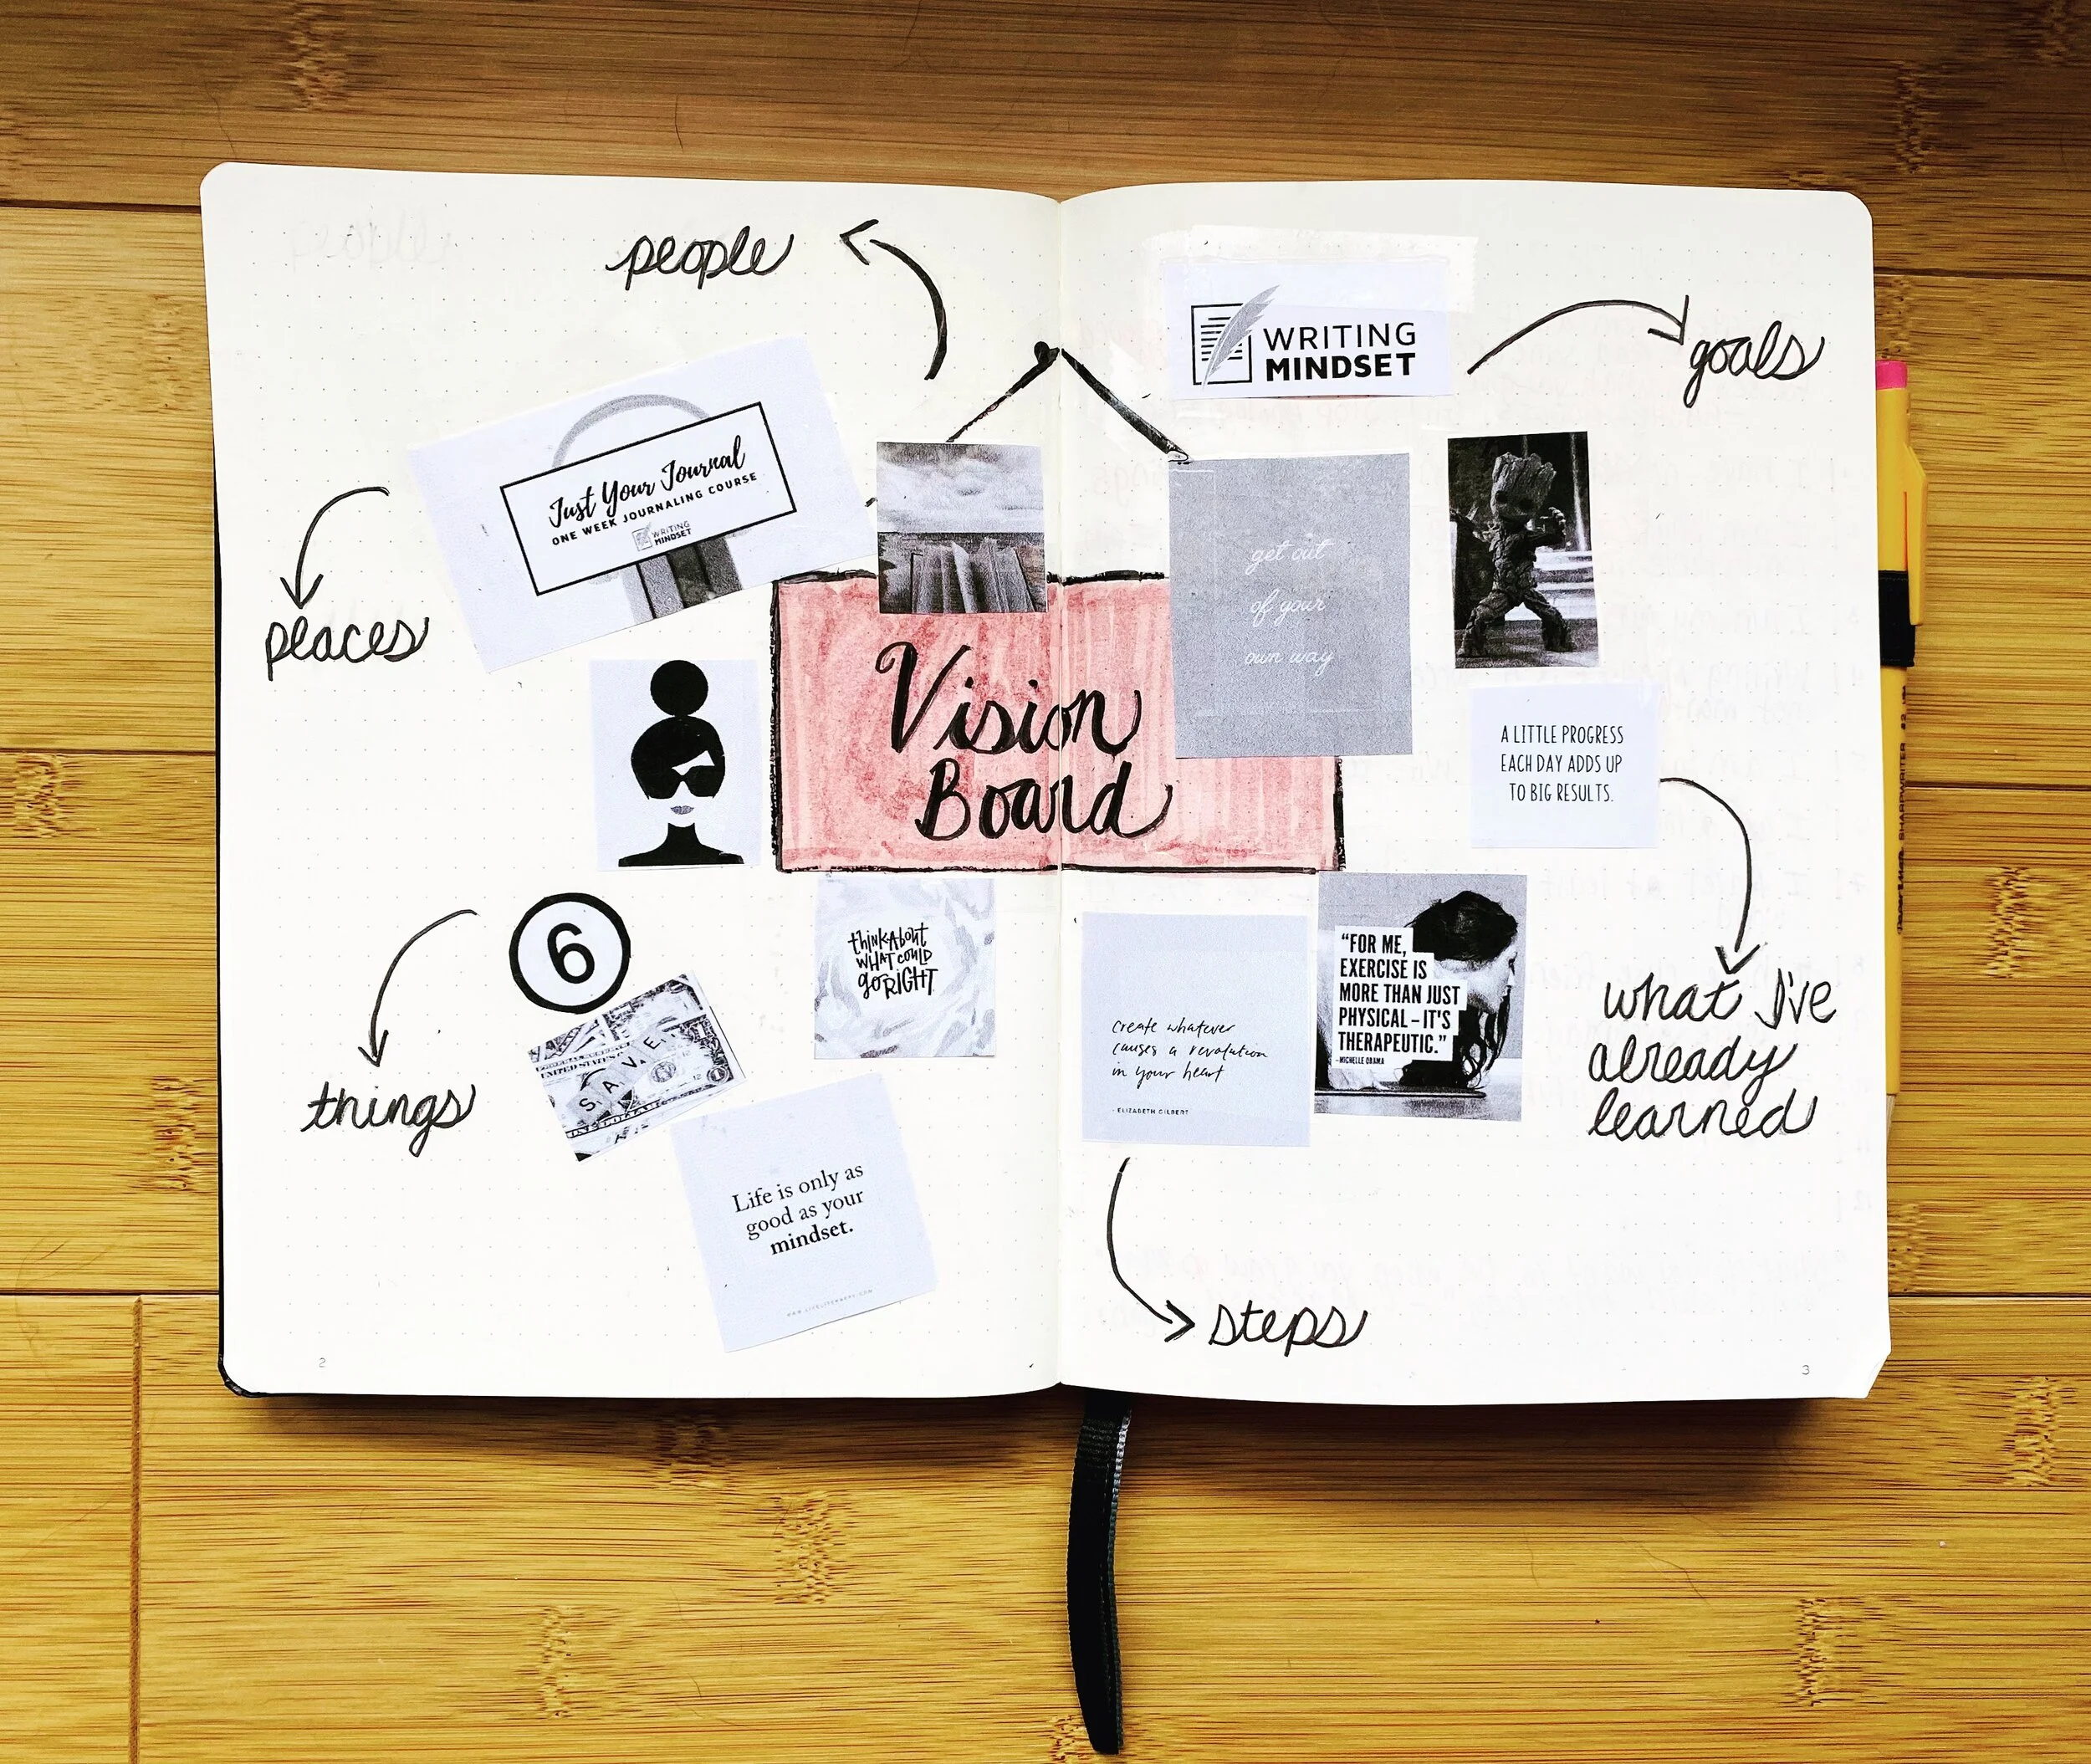 people
WRITING
MINDSET
goals
Just Your Journal
ONE WEEK JOURNALING COURSE
WRITING
MINDSET
places
get out
of your
own way
Vision
Board
A LITTLE PROGRESS
EACH DAY ADDS UP
TO BIG RESULTS.
6
thinkAbout
WHAT COULD
goRIGHT
"FOR ME,
EXERCISE IS
MORE THAN JUST
PHYSICAL – IT'S
THERAPEUTIC."
–MICHELLE OBAMA
what I've
already
learned
UNITED STATES
SAVE
1
things
create whatever
causes a revolution
in your heart
- ELIZABETH GILBERT
Life is only as
good as your
mindset.
steps
2
3